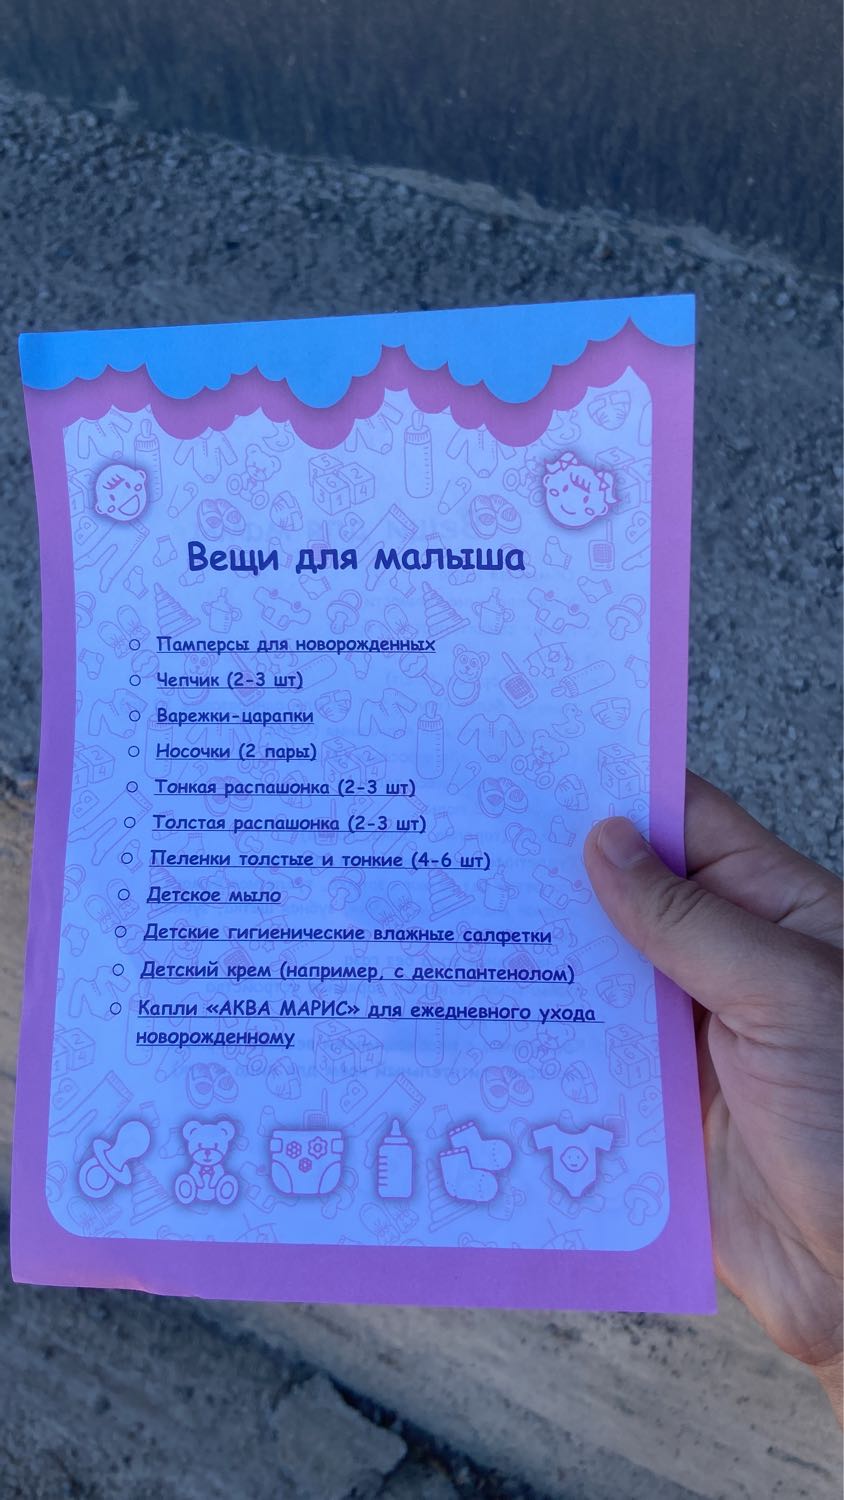 Вещи для малыша
Памперсы для новорожденных
Чепчик (2-3 шт)
Варежки-царапки
Носочки (2 пары)
Тонкая распашонка (2-3 шт)
Толстая распашонка (2-3 шт)
Пеленки толстые и тонкие (4-6 шт)
Детское мыло
Детские гигиенические влажные салфетки
Детский крем (например, с декспантенолом)
Капли «АКВА МАРИС» для ежедневного ухода
новорожденному